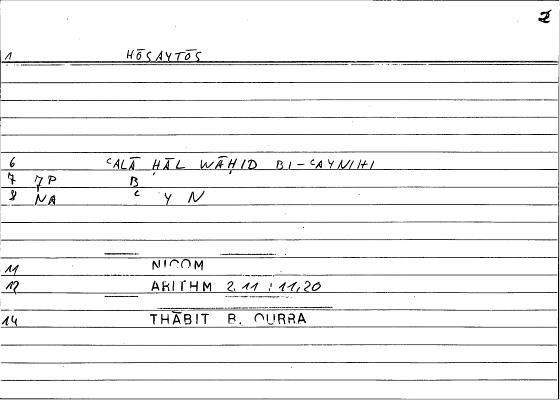 2
1 HŌSAYTŌS
6 ʿALĀ ḤĀL WĀḤID BI-ʿAYNIHI
7 7P B
8 NA ʿ Y N
11 NICOM
12 ARITHM 2,11 : 11,20
14 THĀBIT B. QURRA